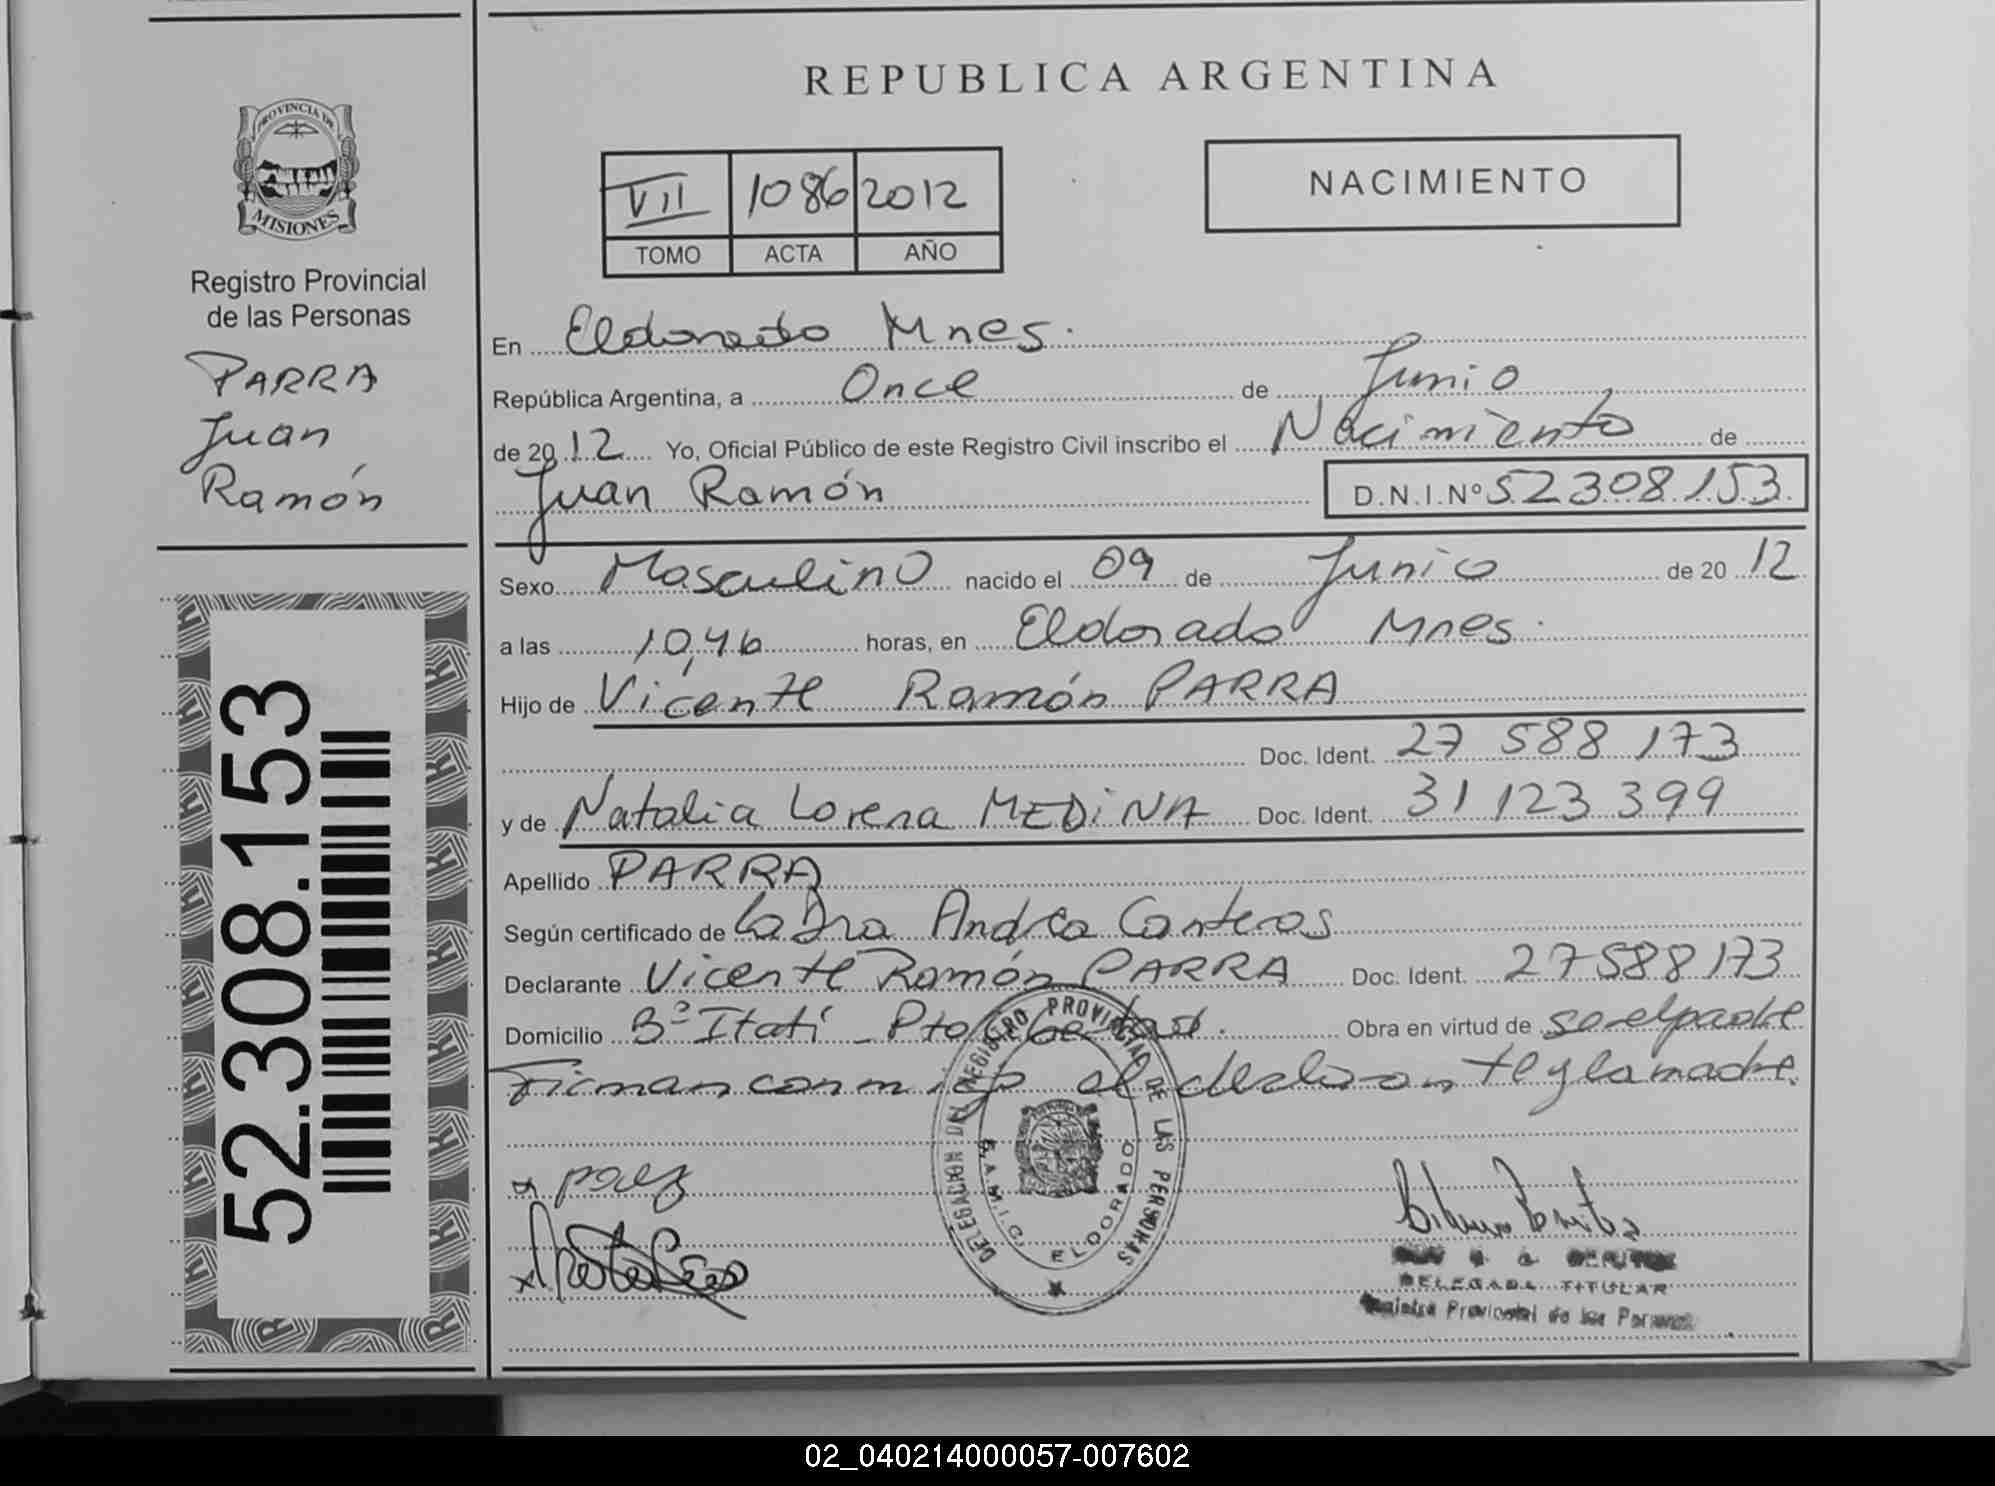 REPUBLICA ARGENTINA
PROVINCIA DE
MISIONES
Registro Provincial
de las Personas
PARRA
Juan
Ramón
52.308.153
VII 1086 2012
TOMO ACTA AÑO
NACIMIENTO
En Eldorado Mnes.
República Argentina, a Once de Junio
de 2012 Yo, Oficial Público de este Registro Civil inscribo el Nacimiento de
Juan Ramón D.N.I.Nº 52308153
Sexo Masculino nacido el 09 de Junio de 2012
a las 10,46 horas, en Eldorado Mnes.
Hijo de Vicente Ramón PARRA
Doc. Ident. 27 588 173
y de Natalia Lorena MEDiNA Doc. Ident. 31 123 399
Apellido PARRA
Según certificado de La Dra Andrea Canteros
Declarante Vicente Ramón PARRA Doc. Ident. 27588173
Domicilio Bº Itatí - Pto Libertad. Obra en virtud de ser el padre
Firman conmigo el declarante y la madre.
DELEGACION DEL REGISTRO PROVINCIAL DE LAS PERSONAS
ELDORADO
DELEGADA TITULAR
Registro Provincial de las Personas
02_040214000057-007602